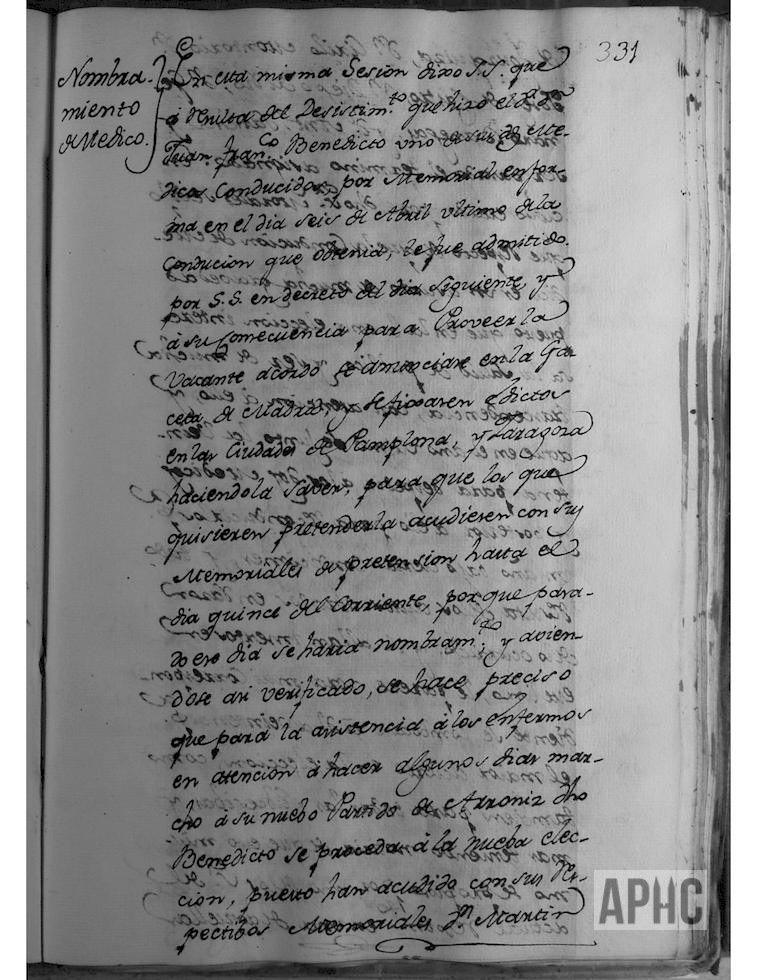 331
Nombra-
miento
de Medico.
En esta misma Sesion dixo S.S. que
á resulta del Desistim.to que hizo el D.r D.n
Juan Fran.co Benedicto uno de sus dos Me-
dicos Conducidos por Memorial en for-
ma en el dia seis de Abril ultimo de la
Conducion que obtenia, le fue admitido
por S.S. en decreto del dia siguiente, y
á su Consecuencia para Proveer la
Vacante acordó se anunciase en la Ga-
ceta de Madrid, y se fixasen edictos
en las Ciudades de Pamplona, y Zaragoza
haciendola Saver, para que los que
quisieren pretenderla acudiesen con sus
Memoriales de pretension hasta el
dia quince del Corriente, porque para
do ese dia se haria nombram.to, y avien-
dose asi verificado, se hace preciso
que para la asistencia á los enfermos
en atencion á hacer algunos dias mar-
cho á su nuebo Partido de Arroniz dho
Benedicto se proceda á la nueba elec-
cion, puesto han acudido con sus res-
pectibos Memoriales D.n Martin
APHC